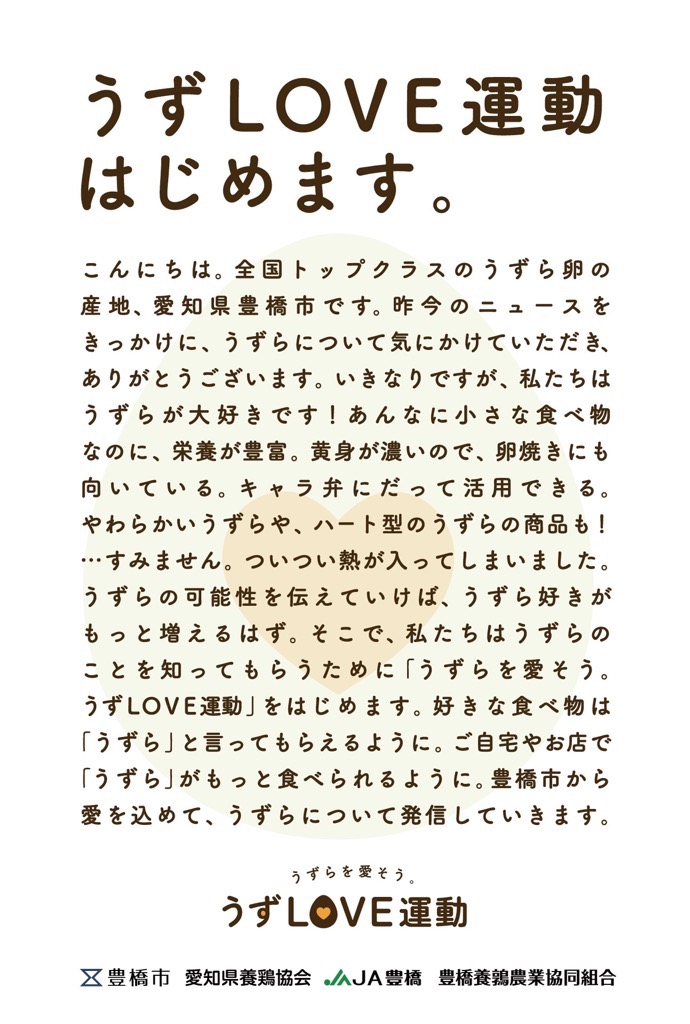 うずLOVE運動
はじめます。
こんにちは。全国トップクラスのうずら卵の
産地、愛知県豊橋市です。昨今のニュースを
きっかけに、うずらについて気にかけていただき、
ありがとうございます。いきなりですが、私たちは
うずらが大好きです！あんなに小さな食べ物
なのに、栄養が豊富。黄身が濃いので、卵焼きにも
向いている。キャラ弁にだって活用できる。
やわらかいうずらや、ハート型のうずらの商品も！
…すみません。ついつい熱が入ってしまいました。
うずらの可能性を伝えていけば、うずら好きが
もっと増えるはず。そこで、私たちはうずらの
ことを知ってもらうために「うずらを愛そう。
うずLOVE運動」をはじめます。好きな食べ物は
「うずら」と言ってもらえるように。ご自宅やお店で
「うずら」がもっと食べられるように。豊橋市から
愛を込めて、うずらについて発信していきます。
うずらを愛そう。
うずLOVE運動
豊橋市 愛知県養鶏協会 JA豊橋 豊橋養鶉農業協同組合